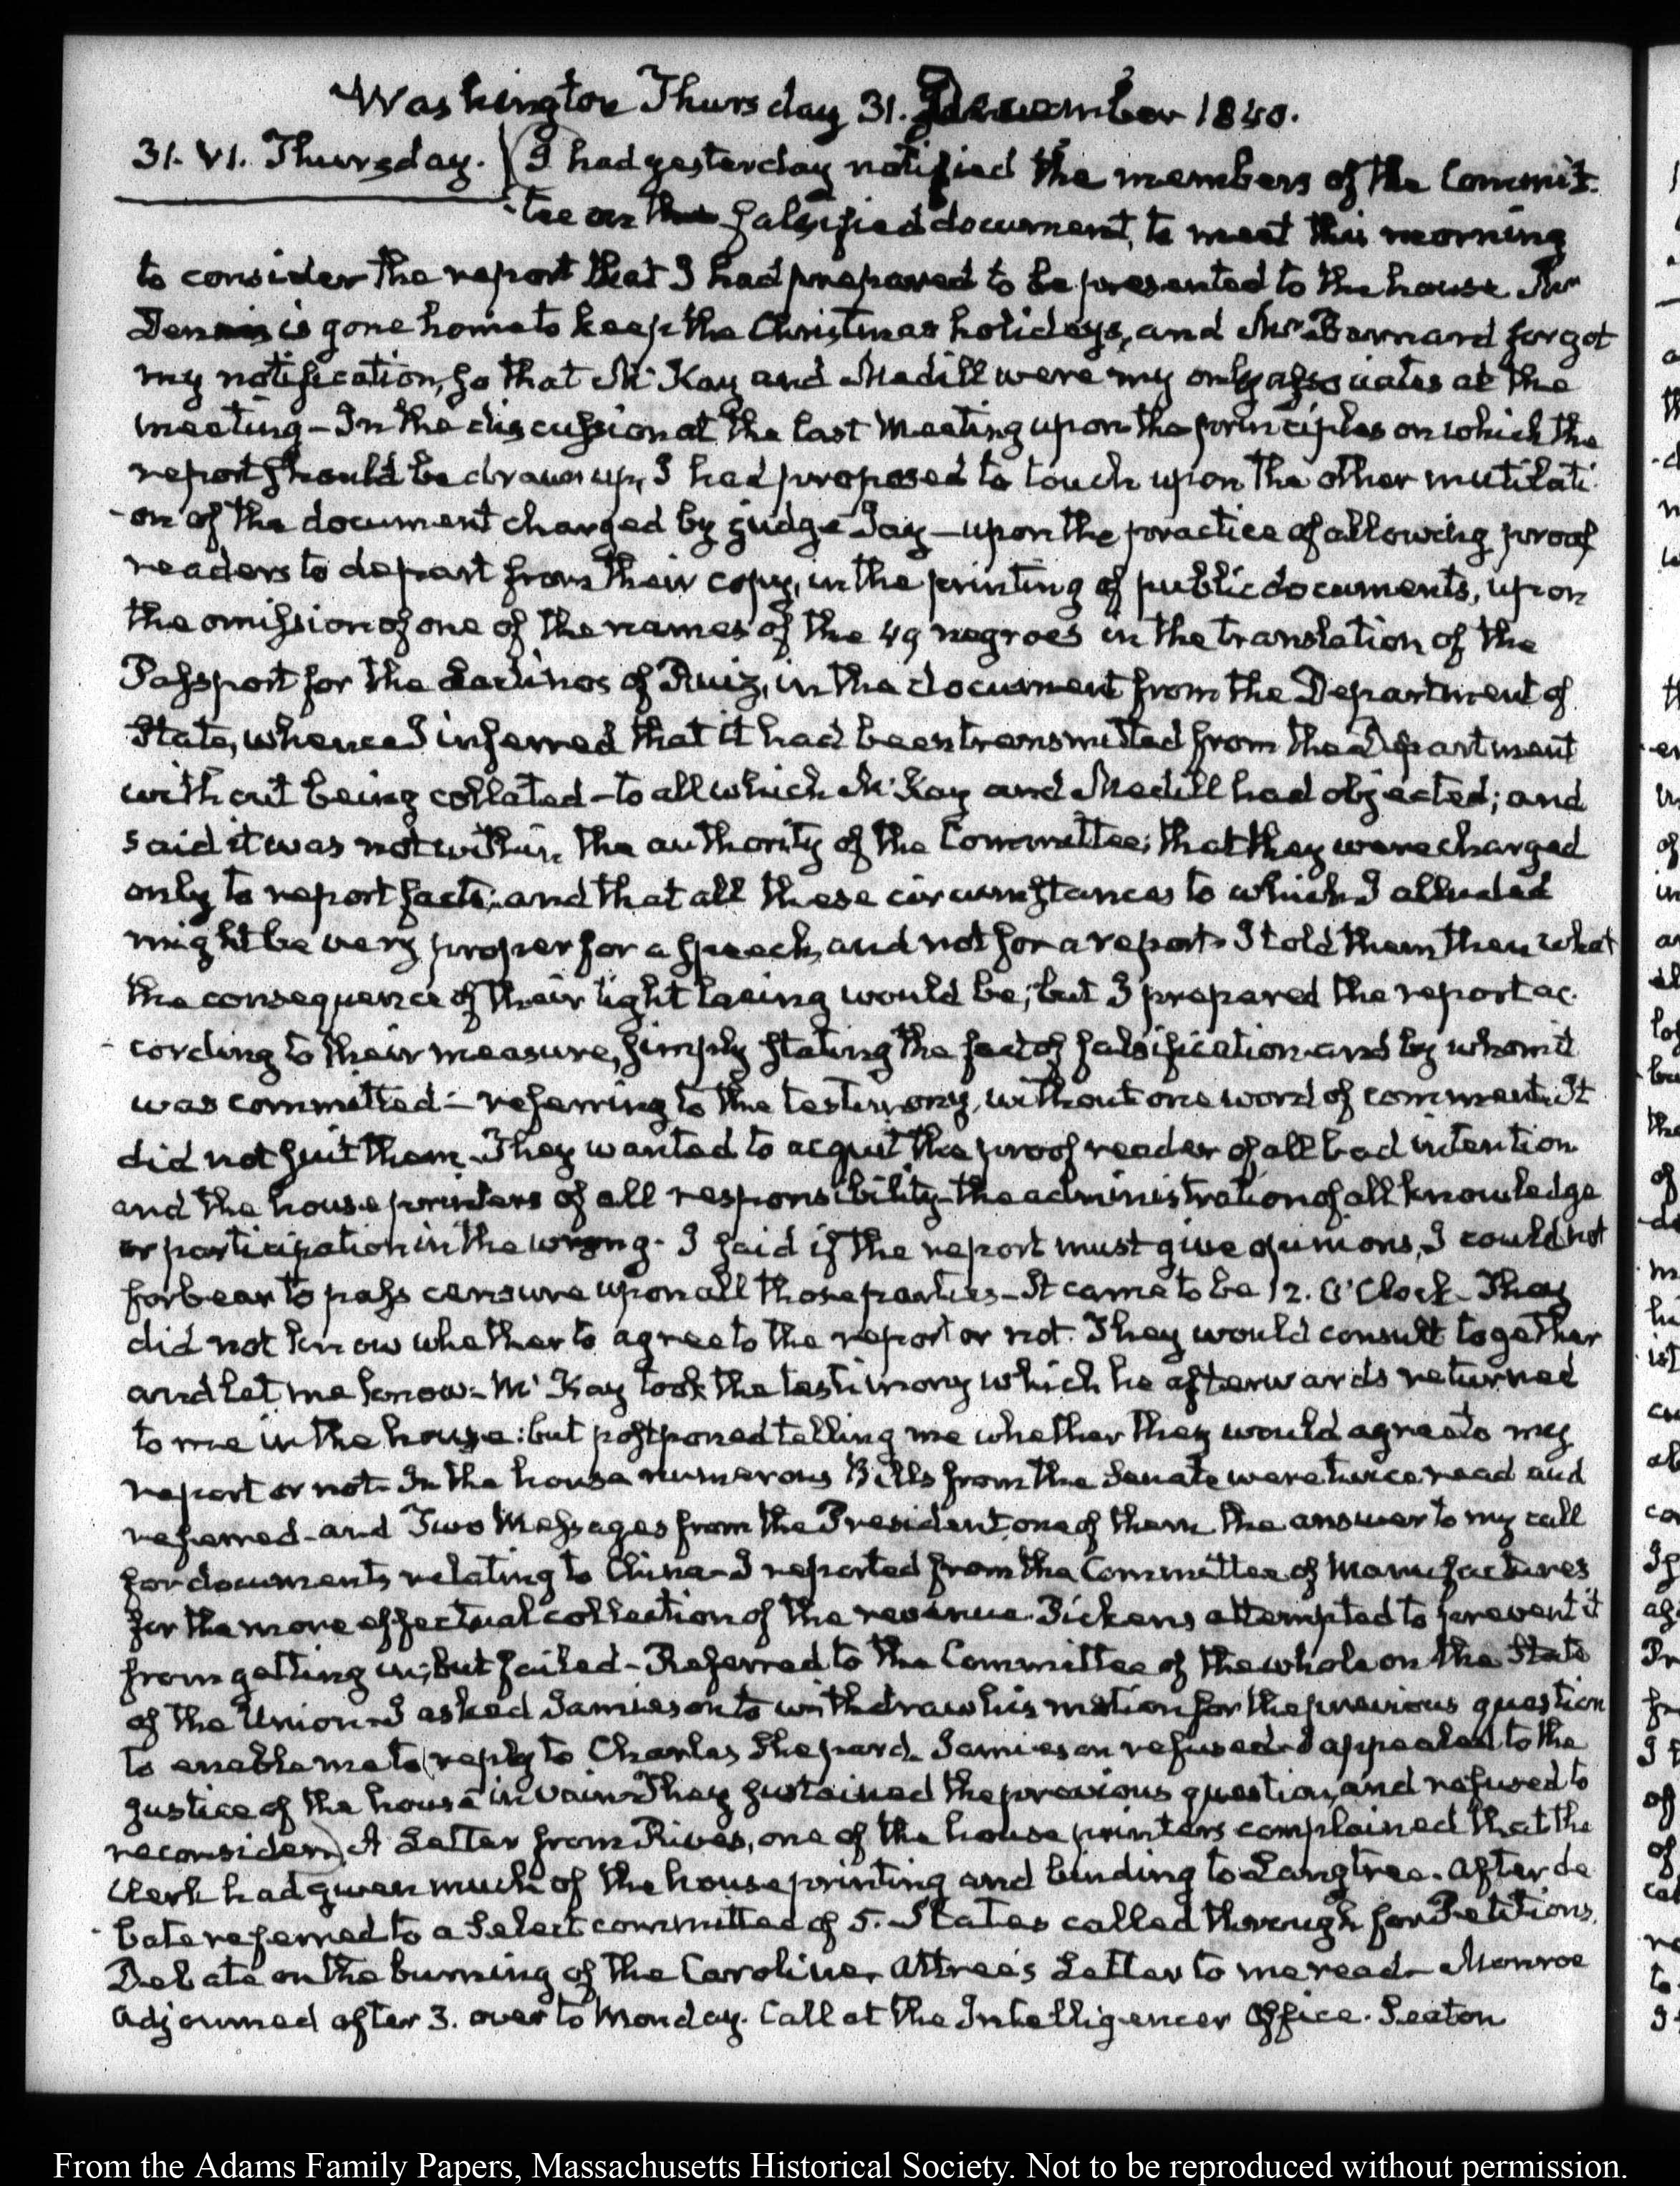 Washington Thursday 31. December 1840.
31. VI. Thursday. I had yesterday notified the members of the Commit-
-tee on the falsified document, to meet this morning
to consider the report that I had prepared to be presented to the house Mr
Dennis is gone home to keep the Christmas holidays, and Mr Barnard forgot
my notification, so that Mc Kay and Medill were my only associates at the
meeting – In the discussion at the last Meeting upon the principles on which the
report should be drawn up, I had proposed to touch upon the other mutilati-
-on of the document charged by judge Jay – upon the practice of allowing proof
readers to depart from their copy, in the printing of public documents, upon
the omission of one of the names of the 49 negroes in the translation of the
Passport for the Ladinos of Ruiz, in the document from the Department of
State, whence I inferred that it had been transmitted from the Department
without being collated – to all which Mc Kay and Medill had objected; and
said it was not within the authority of the Committee; that they were charged
only to report facts; and that all these circumstances to which I alluded
might be very proper for a speech, and not for a report. I told them then what
the consequence of their tight lacing would be; but I prepared the report ac-
-cording to their measure, simply stating the fact of falsification and by whom it
was committed – referring to the testimony, without one word of comment. It
did not suit them. They wanted to acquit the proof reader of all bad intention
and the house printers of all responsibility – the administration of all knowledge
or participation in the wrong – I said if the report must give opinions, I could not
forbear to pass censure upon all those parties – It came to be 12. O'Clock – They
did not know whether to agree to the report or not. They would consult together
and let me know – Mc Kay took the testimony which he afterwards returned
to me in the house: but postponed telling me whether they would agree to my
report or not – In the house numerous Bills from the Senate were twice read and
referred – and Two Messages from the President one of them the answer to my call
for documents relating to China – I reported from the Committee of Manufactures
for the more effectual collection of the revenue. Pickens attempted to prevent it
from getting in; but failed – Referred to the Committee of the whole on the State
of the Union – I asked Jamieson to withdraw his motion for the previous question
to enable me to (reply to Charles Shepard – Jamieson refused – I appealed to the
justice of the house in vain – They sustained the previous question, and refused to
reconsider). A Letter from Rives, one of the house printers complained that the
Clerk had given much of the house printing and binding to Langtree. After de
-bate referred to a Select committee of 5. States called through for Petitions.
Debate on the burning of the Caroline. Attree's Letter to me read – Monroe
Adjourned after 3. over to Monday. Call at the Intelligencer Office. Seaton
From the Adams Family Papers, Massachusetts Historical Society. Not to be reproduced without permission.